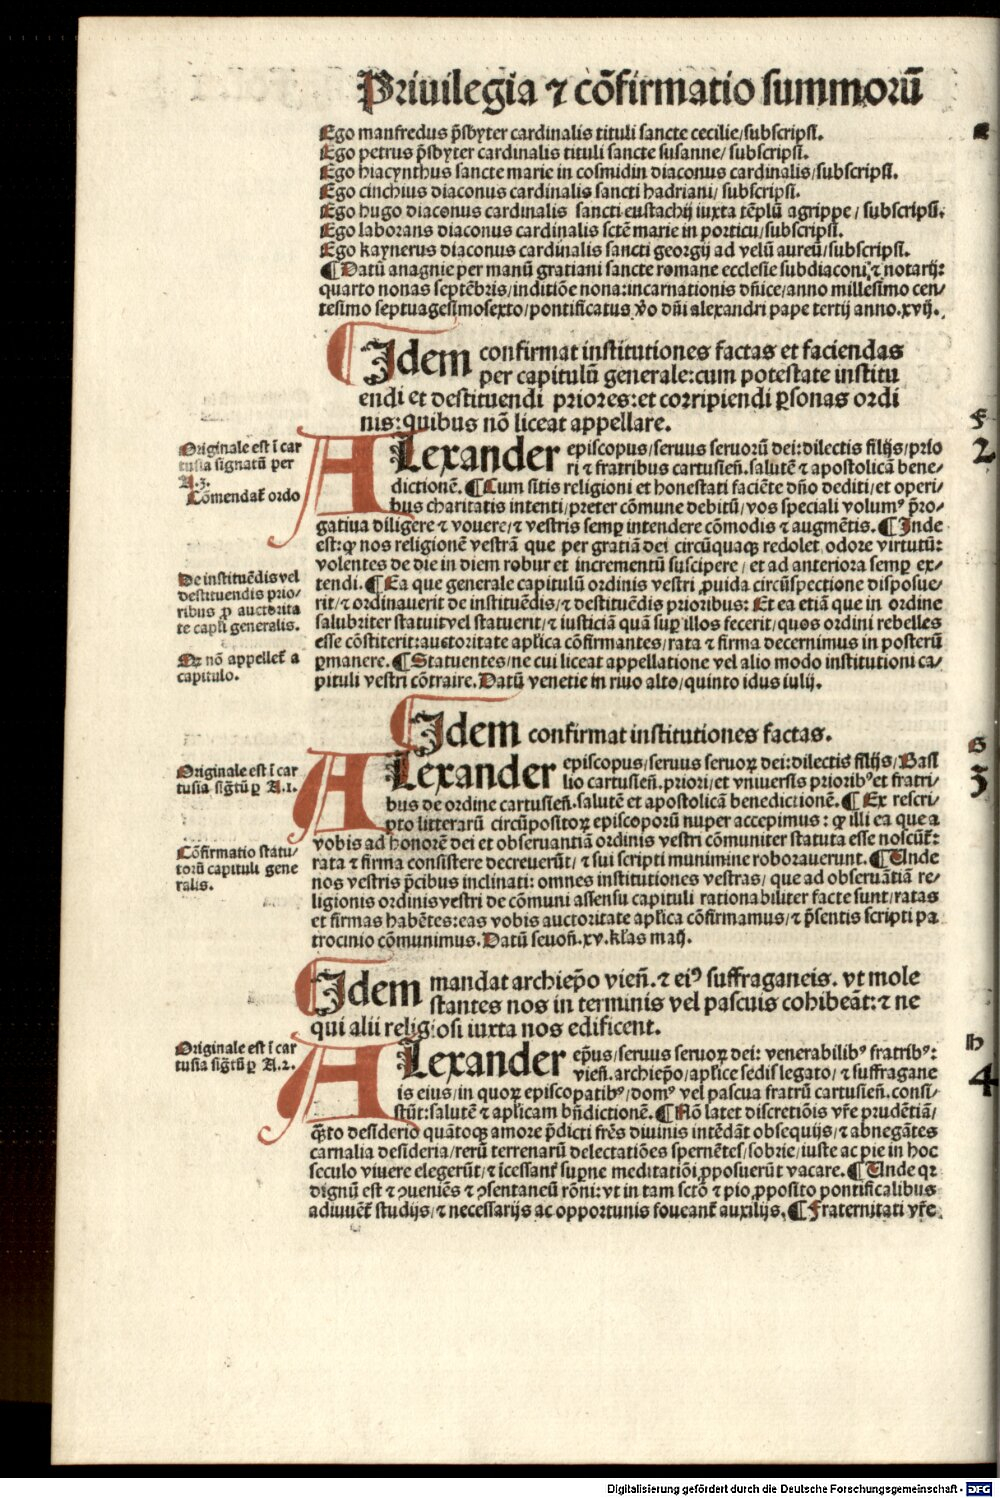 Priuilegia ⁊ cõfirmatio summorũ
Ego manfredus p̃sbyter cardinalis tituli sancte cecilie/subscripsi.
Ego petrus p̃sbyter cardinalis tituli sancte susanne/ subscripsi.
Ego hiacynthus sancte marie in cosmidin diaconus cardinalis/subscripsi.
Ego cinchius diaconus cardinalis sancti hadriani/ subscripsi.
Ego hugo diaconus cardinalis sancti eustachij iuxta tẽplũ agrippe/ subscripsi.
Ego laborans diaconus cardinalis sctẽ marie in porticu/subscripsi.
Ego kaynerus diaconus cardinalis sancti georgij ad velũ aureũ/subscripsi.
¶Datũ anagnie per manũ gratiani sancte romane ecclesie subdiaconi/⁊ notarij:
quarto nonas septẽbris/inditiõe nona:incarnationis dñice/anno millesimo cen/
tesimo septuagesimosexto/pontificatus ṽo dñi alexandri pape tertij anno.xvij.
Idem confirmat institutiones factas et faciendas
per capitulũ generale:cum potestate institu
endi et destituendi priores:et corripiendi ꝑsonas ordi
nis:quibus nõ liceat appellare.
Originale est ĩ car
tusia signatũ per
A.3.
Cõmendat̃ ordo
ALexander episcopus/seruus seruorũ dei:dilectis filijs/prio
ri ⁊ fratribus cartusieñ.salutẽ ⁊ apostolicã bene/
dictionẽ.¶Cum sitis religioni et honestati faciẽte dño dediti/et operi/
bus charitatis intenti/preter cõmune debitũ/vos speciali volumꝰ p̃ro/
gatiua diligere ⁊ vouere/⁊ vestris semꝑ intendere cõmodis ⁊ augmẽtis.¶Inde
est:ꝙ nos religionẽ vestrã que per gratiã dei circũquaꝗ redolet odore virtutũ:
volentes de die in diem robur et incrementũ suscipere/et ad anteriora semꝑ ex/
tendi.¶Ea que generale capitulũ ordinis vestri ꝓuida circũspectione disposue/
rit/⁊ ordinauerit de instituẽdis/⁊ destituẽdis prioribus: Et ea etiã que in ordine
salubriter statuit vel statuerit/⁊ iusticiã quã suꝑ illos fecerit/quos ordini rebelles
esse cõstiterit:auctoritate apl̃ica cõfirmantes/rata ⁊ firma decernimus in posterũ
ꝑmanere.¶Statuentes/ne cui liceat appellatione vel alio modo institutioni ca/
pituli vestri cõtraire.Datũ venetie in riuo alto/quinto idus iulij.
De instituẽdis vel
destituendis prio/
ribus ꝓ auctorita
te capl̃i generalis.
Et nõ appellet̃ a
capitulo.
Idem confirmat institutiones factas.
Originale est ĩ car
tusia sig̃tũ ꝑ A.1.
ALexander episcopus/seruus seruoꝝ dei:dilectis filijs/Basi
lio cartusieñ.priori/et vniuersis prioribꝰ et fratri/
bus de ordine cartusieñ.salutẽ et apostolicã benedictionẽ.¶Ex rescri/
pto litterarũ circũpositoꝝ episcoporũ nuper accepimus: ꝙ illi ea que a
vobis ad honorẽ dei et obseruantiã ordinis vestri cõmuniter statuta esse noscũt̃:
rata ⁊ firma consistere decreuerũt/ ⁊ sui scripti munimine roborauerunt.¶Unde
nos vestris p̃cibus inclinati: omnes institutiones vestras/ que ad obseruãtiã re/
ligionis ordinis vestri de cõmuni assensu capituli rationabiliter facte sunt/ratas
et firmas habẽtes:eas vobis auctoritate apl̃ica cõfirmamus/⁊ p̃sentis scripti pa
trocinio cõmunimus.Datũ seuoñ.xv.kl̃as maij.
Cõfirmatio statu/
torũ capituli gene
ralis.
Idem mandat archiep̃o vieñ.⁊ eiꝰ suffraganeis. vt mole
stantes nos in terminis vel pascuis cohibeãt:⁊ ne
qui alii religiosi iuxta nos edificent.
Originale est ĩ car
tusia sig̃tũ ꝑ A.2.
ALexander ep̃us/seruus seruoꝝ dei: venerabilibꝰ fratribꝰ:
vieñ.archiep̃o/apl̃ice sedis legato/ ⁊ suffragane
is eius/in quoꝝ episcopatibꝰ/domꝰ vel pascua fratrũ cartusieñ.consi/
stũt:salutẽ ⁊ apl̃icam bñdictionẽ.¶Nõ latet discretiõis vr̃e prudẽtiã/
q̃to desiderio quãtoꝗ amore p̃dicti fr̃es diuinis intẽdãt obsequijs/⁊ abnegãtes
carnalia desideria/rerũ terrenarũ delectatiões spernẽtes/sobrie/iuste ac pie in hoc
seculo viuere elegerũt/⁊ ĩcessant̃ suꝑne meditatiõi ꝓposuerũt vacare.¶Unde qꝛ
dignũ est ⁊ ꝯueniẽs ⁊ ꝯsentaneũ rõni:vt in tam sctõ ⁊ pio ꝓposito pontificalibus
adiuuẽt̃ studijs/⁊ necessarijs ac opportunis foueant̃ auxilijs.¶Fraternitati vr̃e
F
2
G
3
h
4